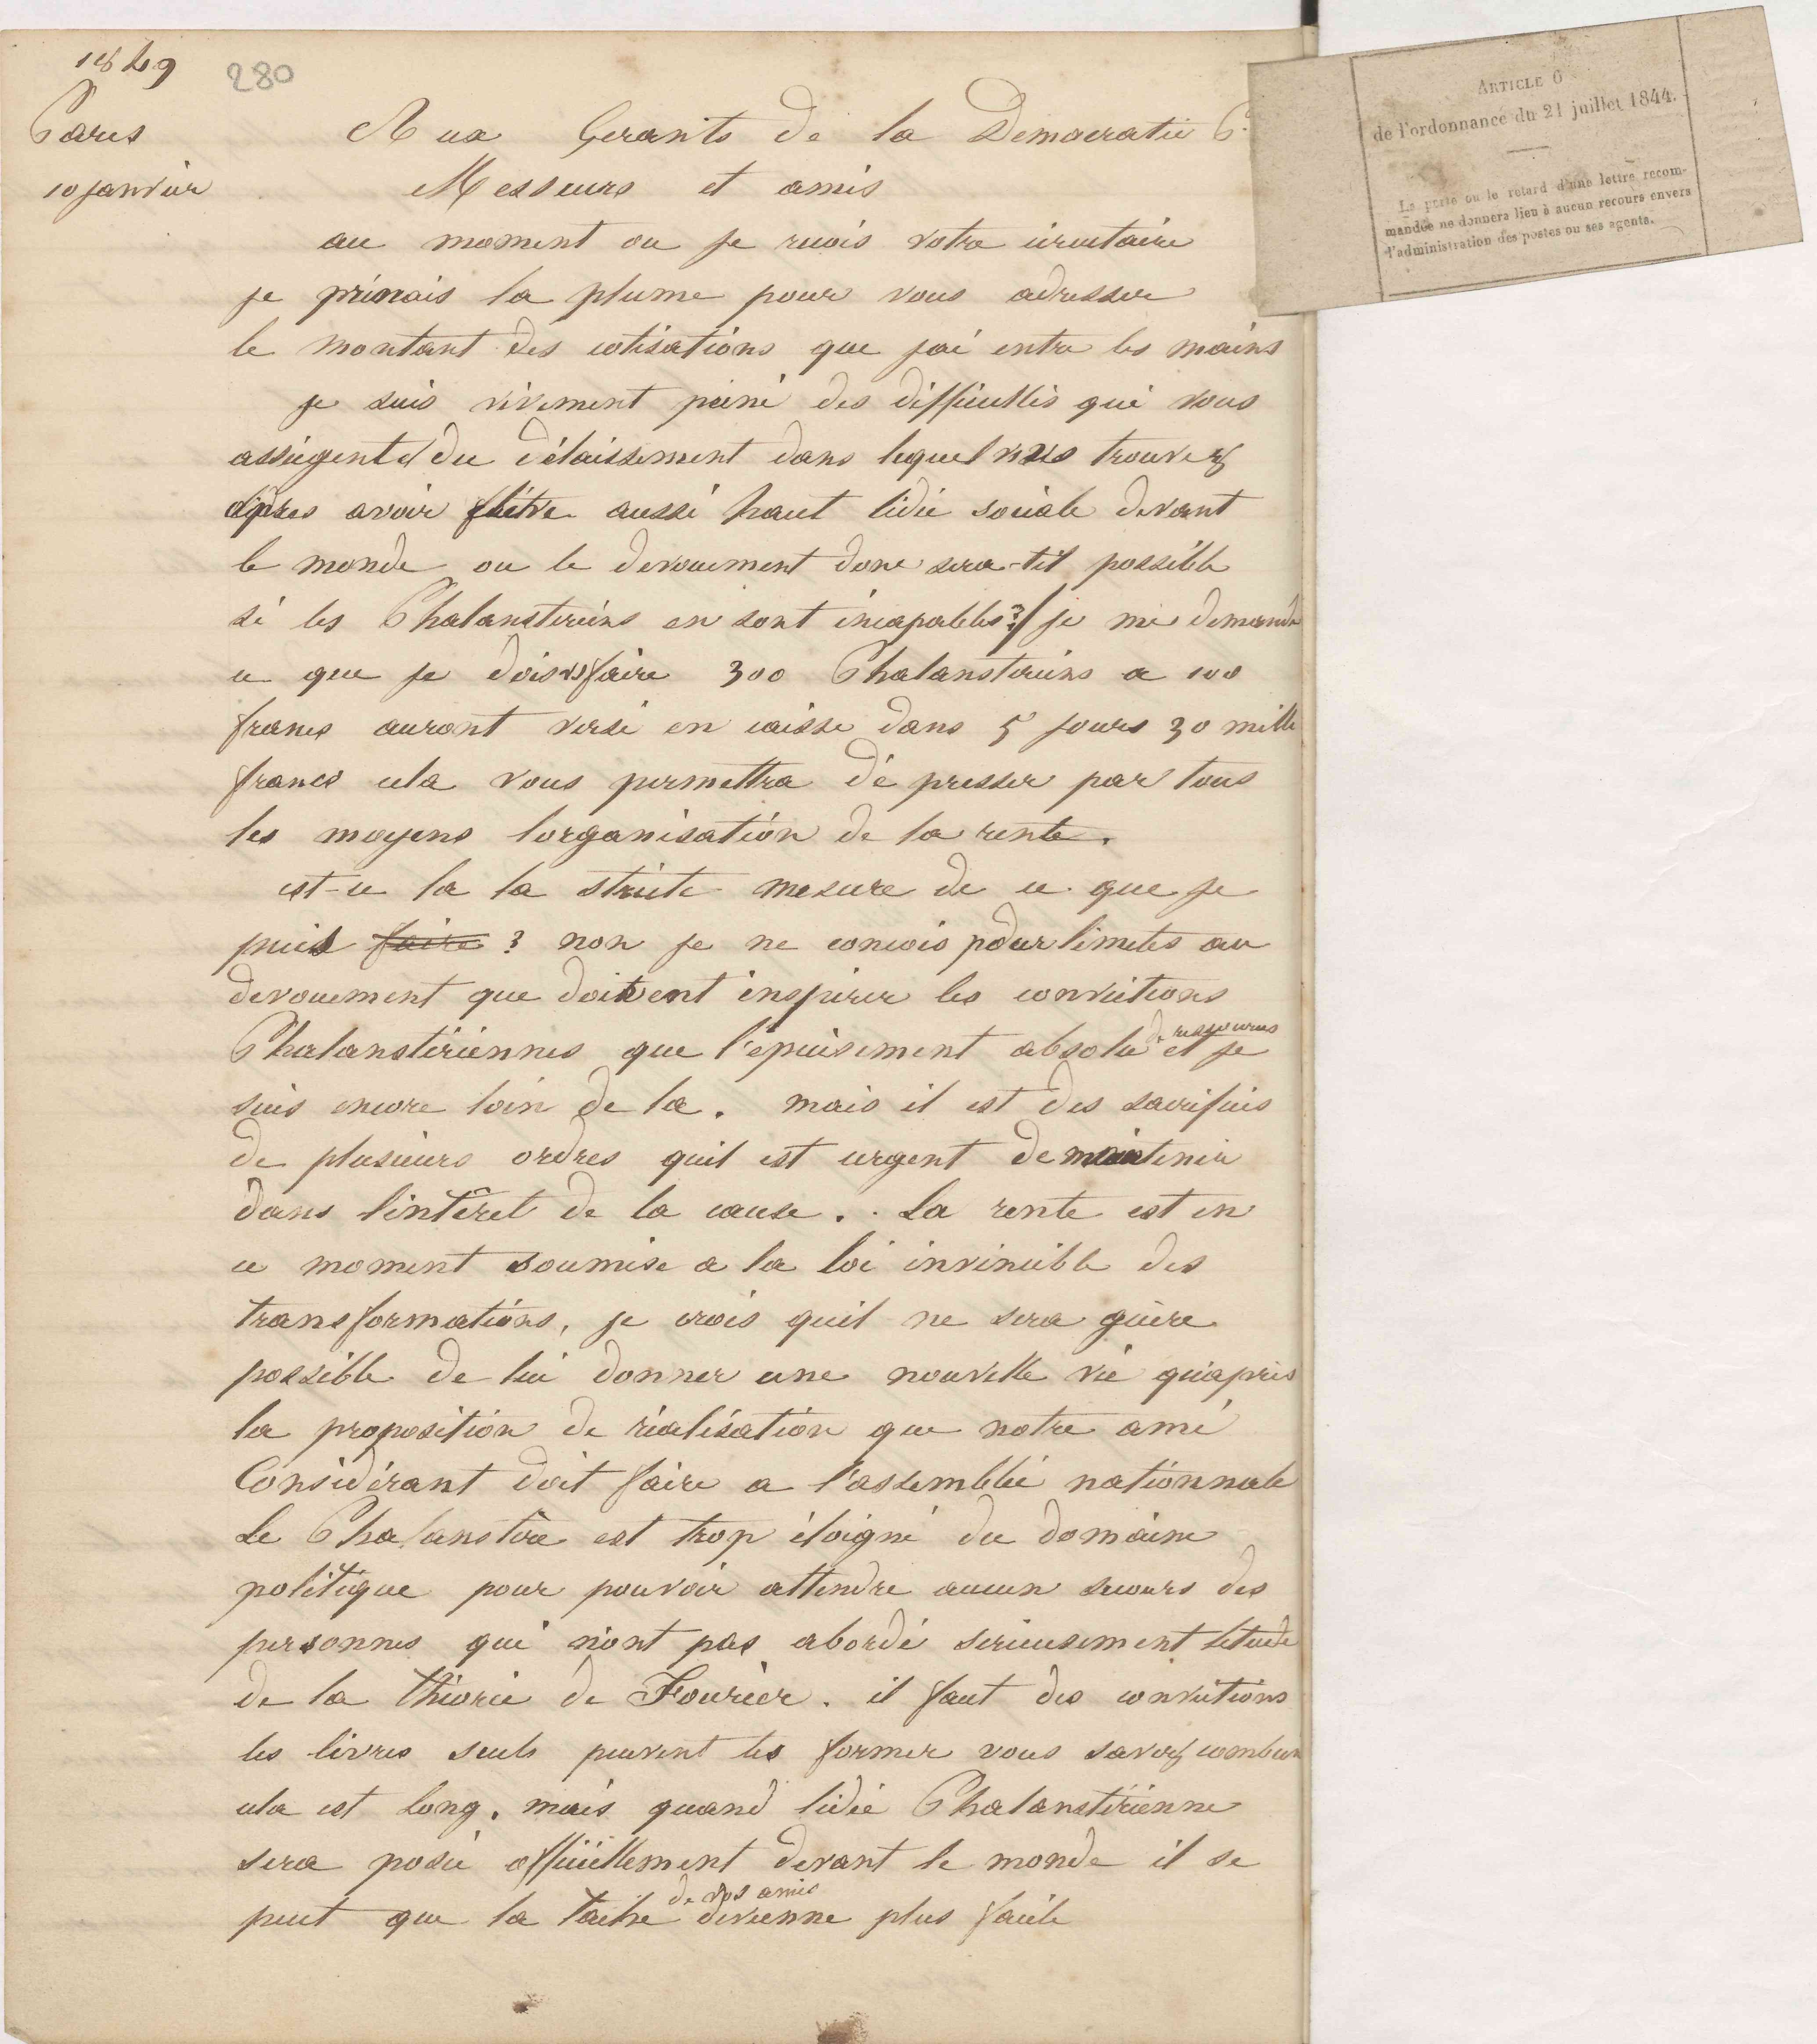 1849
280
Paris
10 janvier
Aux Gerants de la Democratie P.
Messeurs et amis
au moment ou je recois votre circulaire
je prenais la plume pour vous adresser
le montant des cotisations que jai entre les mains
je suis vivement peiné des difficultés qui vous
assiegent et du délaissement dans lequel vous trouvez
après avoir aussi haut lidée sociale devant
le monde ou le devouement donc sera-til possible
si les Phalansteriens en sont incapables ? / je me demande
ce que je dois faire 300 Phalansteriens a 100
francs auront versé en caisse dans 5 jours 30 mille
francs cela vous permettra de presser par tous
les moyens lorganisation de la rente.
est-ce la la stricte mesure de ce que je
puis faire ? non je ne concois pour limites au
devouement que doivent inspirer les convictions
Phalanstériennes que l'épuisement absolu de ressources et je
suis encore loin de la. mais il est des sacrifices
de plusieurs ordres quil est urgent de maintenir
dans lintêret de la cause. . La rente est en
ce moment soumise a la loi invincible des
transformations, je crois quil ne sera guère
possible de lui donner une nouvelle vie qu'après
la proposition de réalisation que notre ami
Considérant doit faire a l'assemblée nationnale
Le Phalanstère est trop éloigné du domaine
politique pour pouvoir attendre aucun secours des
personnes qui n'ont pas abordé serieusement letude
de la théorie de Fourier. il faut des convictions
les livres seuls peuvent les former vous savez combien
cela est long. mais quand lidée Phalanstérienne
sera posée officiellement devant le monde il se
peut que la tache de vos amis devienne plus facile
ARTICLE 6
de l'ordonnance du 21 juillet 1844.
La perte ou le retard d'une lettre recom-
mandée ne donnera lieu à aucun recours envers
l'administration des postes ou ses agents.